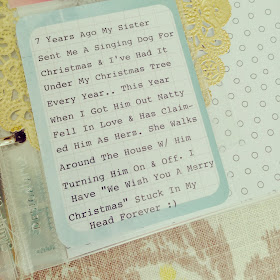 7 Years Ago My Sister
Sent Me A Singing Dog For
Christmas & I've Had It
Under My Christmas Tree
Every Year.. This Year
When I Got Him Out Natty
Fell In Love & Has Claim-
ed Him As Hers. She Walks
Around The House W/ Him
Turning Him On & Off. I
Have "We Wish You A Merry
Christmas" Stuck In My
Head Forever :)